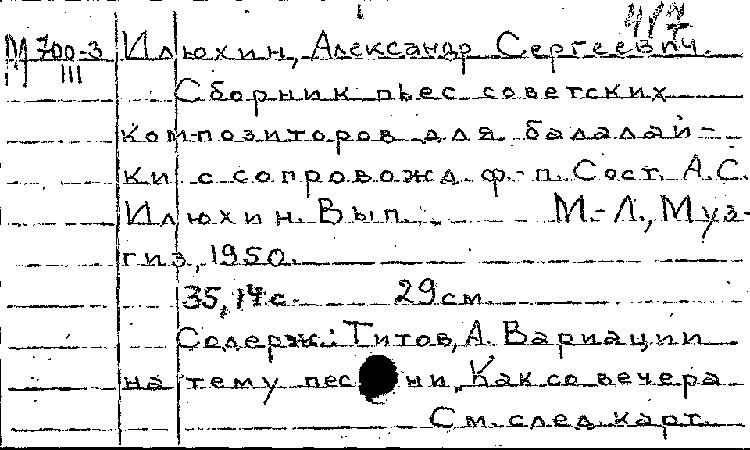 М 700-3 Илюхин, Александр Сергеевич.
III
Сборник пьес советских
композиторов для балалай-
ки с сопровожд. ф.-п. Сост. А.С.
Илюхин. Вып. М.-Л., Муз-
гиз, 1950.
35, 14 с. 29 см.
Содерж.: Титов, А. Вариации
на тему песни „Как со вечера
См. след. карт.